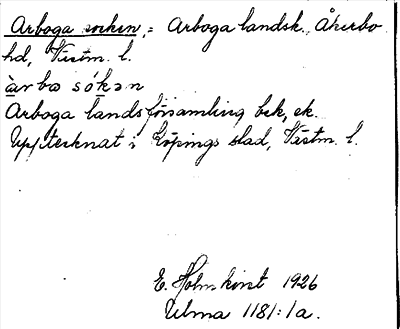 Arboga socken, = Arboga landsk. Åkerbo
hd, Västm. l.
àrbo sókən
Arboga landsförsamling bek, ek.
Upptecknat i Köpings stad, Västm. l.
E. Holmkvist 1926
Ulma 1181:1a.